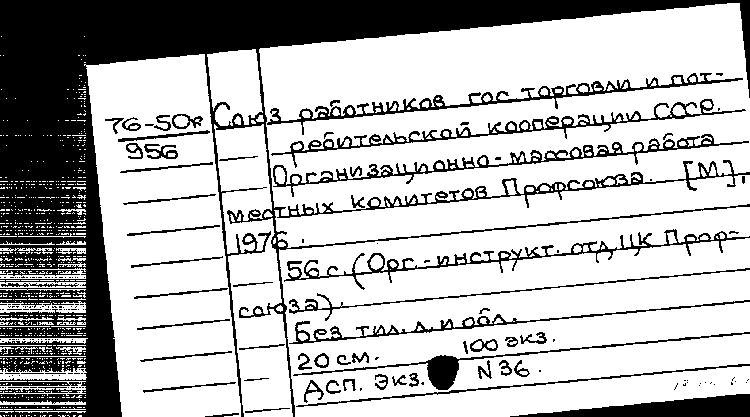 76-50к Союз работников гос торговли и пот-
956 ребительской кооперации СССР.
Организационно-массовая работа
местных комитетов Профсоюза. [М.],
1976.
56 с. (Орг.-инструкт. отд. ЦК Проф-
союза).
Без тит. л. и обл.
20 см. 100 экз.
ДСП. Экз. N 36.